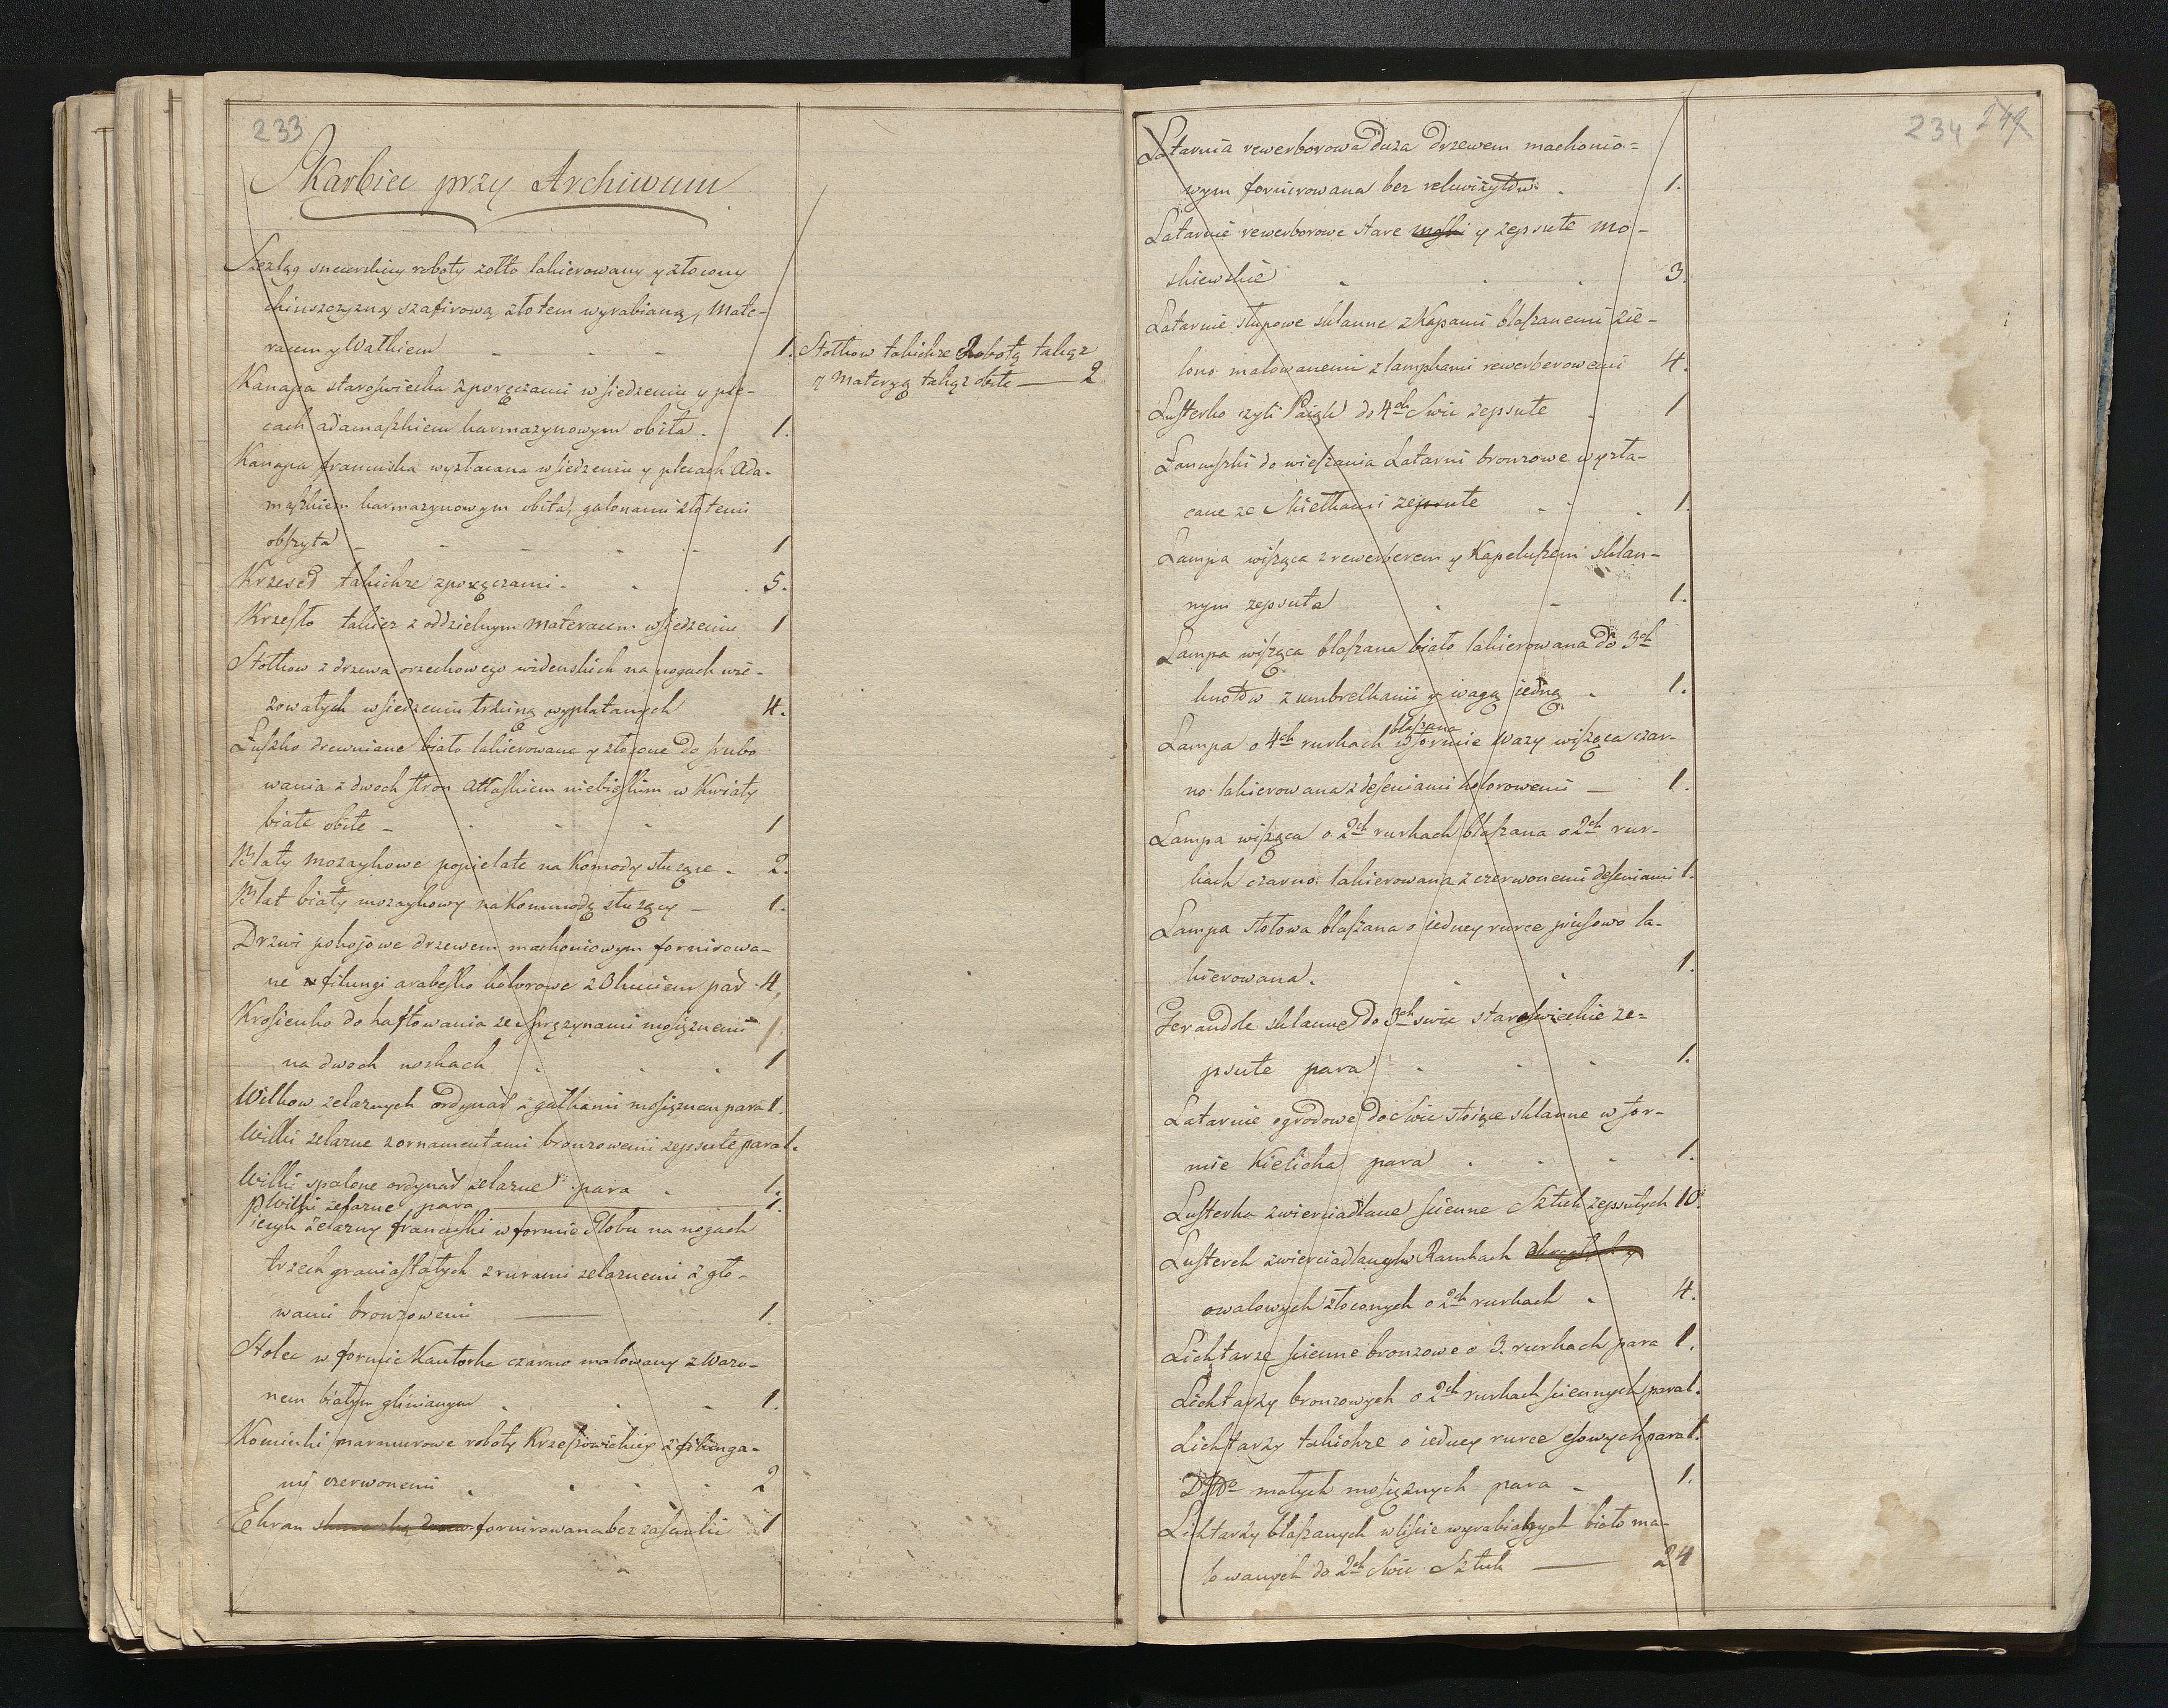 233
Skarbiec przy Archiwum
Szezląg snycerskiey roboty zółto lakierowany y złocony
chinszczyzną szafirową złotem wyrabianą, Mate-
racem y Wałkiem - - - 1.
Kanapa staroświecka z poręczami w siedzeniu y ple-
cach adamaszkiem karmazynowym obita. 1.
Kanapa francuska wyzłacana w siedzeniu y plecach Ada-
maszkiem karmazynowym obita, galonami złotemi
obszyta - - - - - 1
Krzeseł takichze z poręczami - . . 5.
Krzesło takiez z oddzielnym Materacem w siedzeniu 1
Stołkow z drzewa orzechowego widenskich na nogach wi-
zowatych w siedzeniu trzciną wyplatanych 4.
Łuszko drewniane biało lakierowane y złocone do szrubo
wania z dwoch stron Attłaskiem niebieskim w Kwiaty
białe obite - . . . 1
Blaty mozaykowe popielate na Komody służące . 2.
Blat biały mozaykowy na Kommodę służący - 1.
Drzwi pokojowe drzewem machoniowym fornirowa-
ne w filungi arabesko kolorowe z Okuciem par 4.
Krosienko do haftowania ze Sprężynami mosiężnemi
na dwoch nozkach . . . 1
Wilkow zelaznych ordynar: z gałkami mosiężnem para 1.
Wilki zelazne z ornamentami bronzowemi zepsute para 1.
Wilki spalone ordynar: zelazne para . 1.
Wilki żelazne para — 1.
Piecyk żelazny francuski w formie Globu na nogach
trzech graniastałych z rurami zelaznemi z gło-
wami bronzowemi — 1.
Stolec w formie Kantorka czarno malowany z Wazo-
nem białym glinianym . . . 1.
Kominki marmurowe roboty Krzeszowickiey z filunga-
mi czerwonemi . . . . 2
Ekran fornirowana bez zasuwki 1
Stołkow takichze Robotą takąż
z Materyą takąż obite — 2
234 249
Latarnia rewerborowa duża drzewem machonio=
wym fornirowana bez rekwizytów . 1.
Latarnie rewerborowe stare y zepsute mo-
skiewskie . . . 3.
Latarnie słupowe szklanne z Kapami blaszanemi zie-
lono malowanemi z lampkami rewerberowemi 4.
Lusterko czyli Paizk do 4ch Swic zepsute . 1
Łancuszki do wieszania Latarni bronzowe wyzła-
cane ze Skiełkami zepsute . . . 1.
Lampa wisząca z rewerberem y Kapeluszem szklan-
nym zepsuta . - 1.
Lampa wisząca blaszana biało lakierowana do 3ch
knotów z umbrelkami y wagą iedną . 1.
Lampa o 4ch rurkach blaszana w formie Wazy wisząca czar-
no lakierowana z deseniami kolorowemi — 1.
Lampa wisząca o 2ch rurkach blaszana o 2ch rur-
kach czarno lakierowana z czerwonemi deseniami 1.
Lampa stołowa blaszana o iedney rurce piusowo la-
kierowana. . . 1.
Zerandole szklanne do 3ch swic staroswieckie ze-
psute para . . . 1.
Latarnie ogrodowe do Swic stojące szklanne w for-
mie Kielicha para . . . 1.
Lusterka zwierciadlane scienne Sztuk zepsutych 10.
Lusterek zwierciadlanych w Ramkach
owalowych złoconych o 2ch rurkach . 4.
Lichtarze scienne bronzowe o 3. rurkach para 1.
Lichtarzy bronzowych o 2ch rurkach sciennych para 1.
Lichtarzy takichze o iedney rurce esowych para 1.
Do Do małych mosiężnych para . 1.
Lichtarzy blaszanych w liscie wyrabianych biało ma-
lowanych do 2ch Swic Sztuk — 24